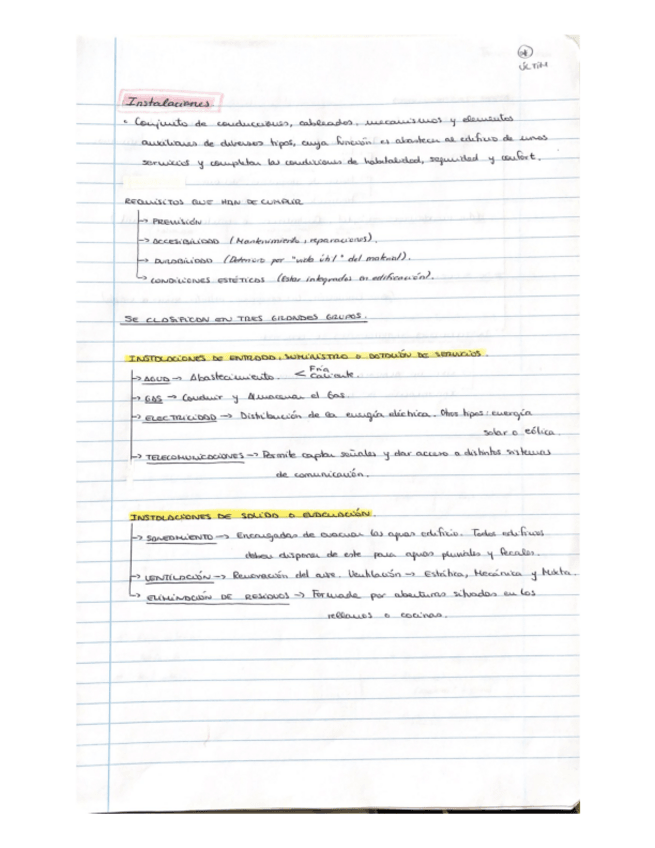 ÚLTIM
Instalaciones.
• Conjunto de conducciones, cableados, mecanismos y elementos
auxiliares de diversos tipos, cuya función es abastecer al edificio de unos
servicios y completar las condiciones de habitabilidad, seguridad y confort.
REQUISITOS QUE HAN DE CUMPLIR
→ PREVISIÓN
→ ACCESIBILIDAD (Mantenimiento, reparaciones).
→ DURABILIDAD (Deterioro por "vida útil" del material).
→ CONDICIONES ESTÉTICOS (Estar integrados en edificación).
SE CLASIFICAN EN TRES GRANDES GRUPOS.
INSTALACIONES DE ENTRADA, SUMINISTRO O DOTACIÓN DE SERVICIOS.
→ AGUA → Abastecimiento. < Fría Caliente.
→ GAS → Conducir y Almacenar el Gas.
→ ELECTRICIDAD → Distribución de la energía eléctrica. Otros tipos: energía
solar o eólica.
→ TELECOMUNICACIONES → Permite captar señales y dar acceso a distintos sistemas
de comunicación.
INSTALACIONES DE SALIDA O EVACUACIÓN.
→ SANEAMIENTO → Encargadas de evacuar las aguas edificio. Todos edificios
deben disponer de este para aguas pluviales y fecales.
→ VENTILACIÓN → Renovación del aire. Ventilación → Estática, Mecánica y Mixta.
→ ELIMINACIÓN DE RESIDUOS → Formada por aberturas situadas en los
rellanos o cocinas.